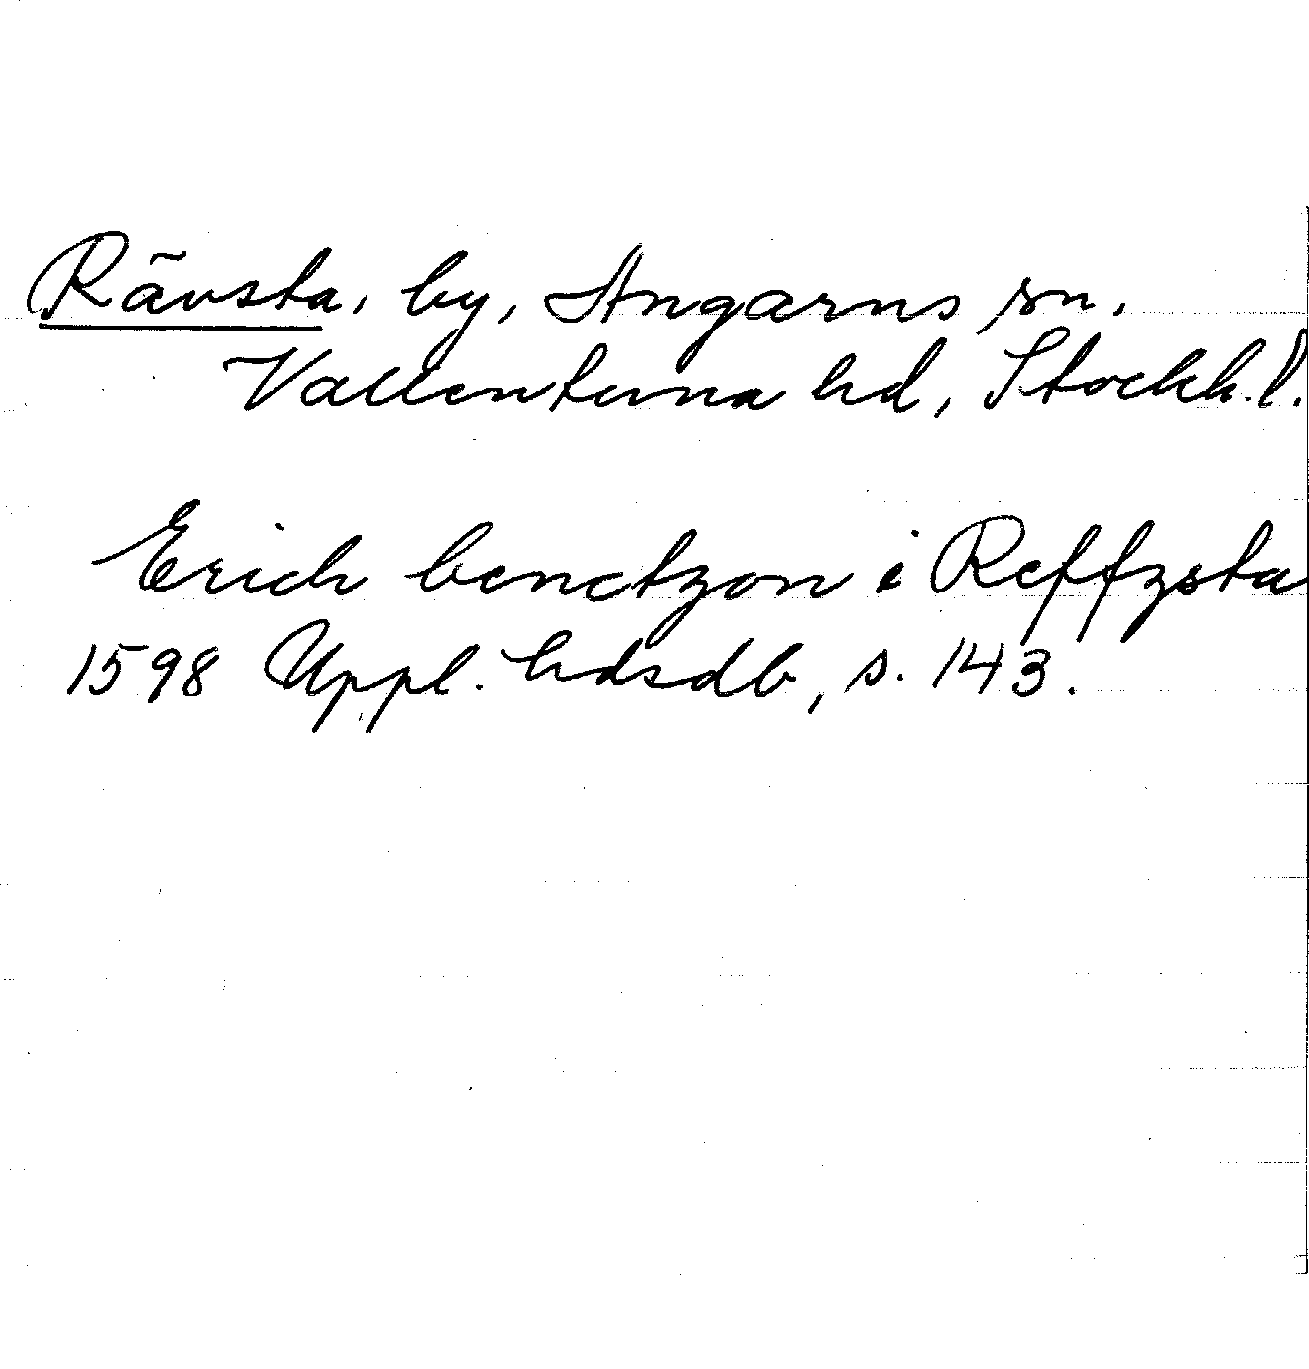 Rävsta, by, Angarns sn,
Vallentuna hd, Stockh. l.
Erich benctzon i Reffzsta
1598 Uppl. hdsdb, s. 143.